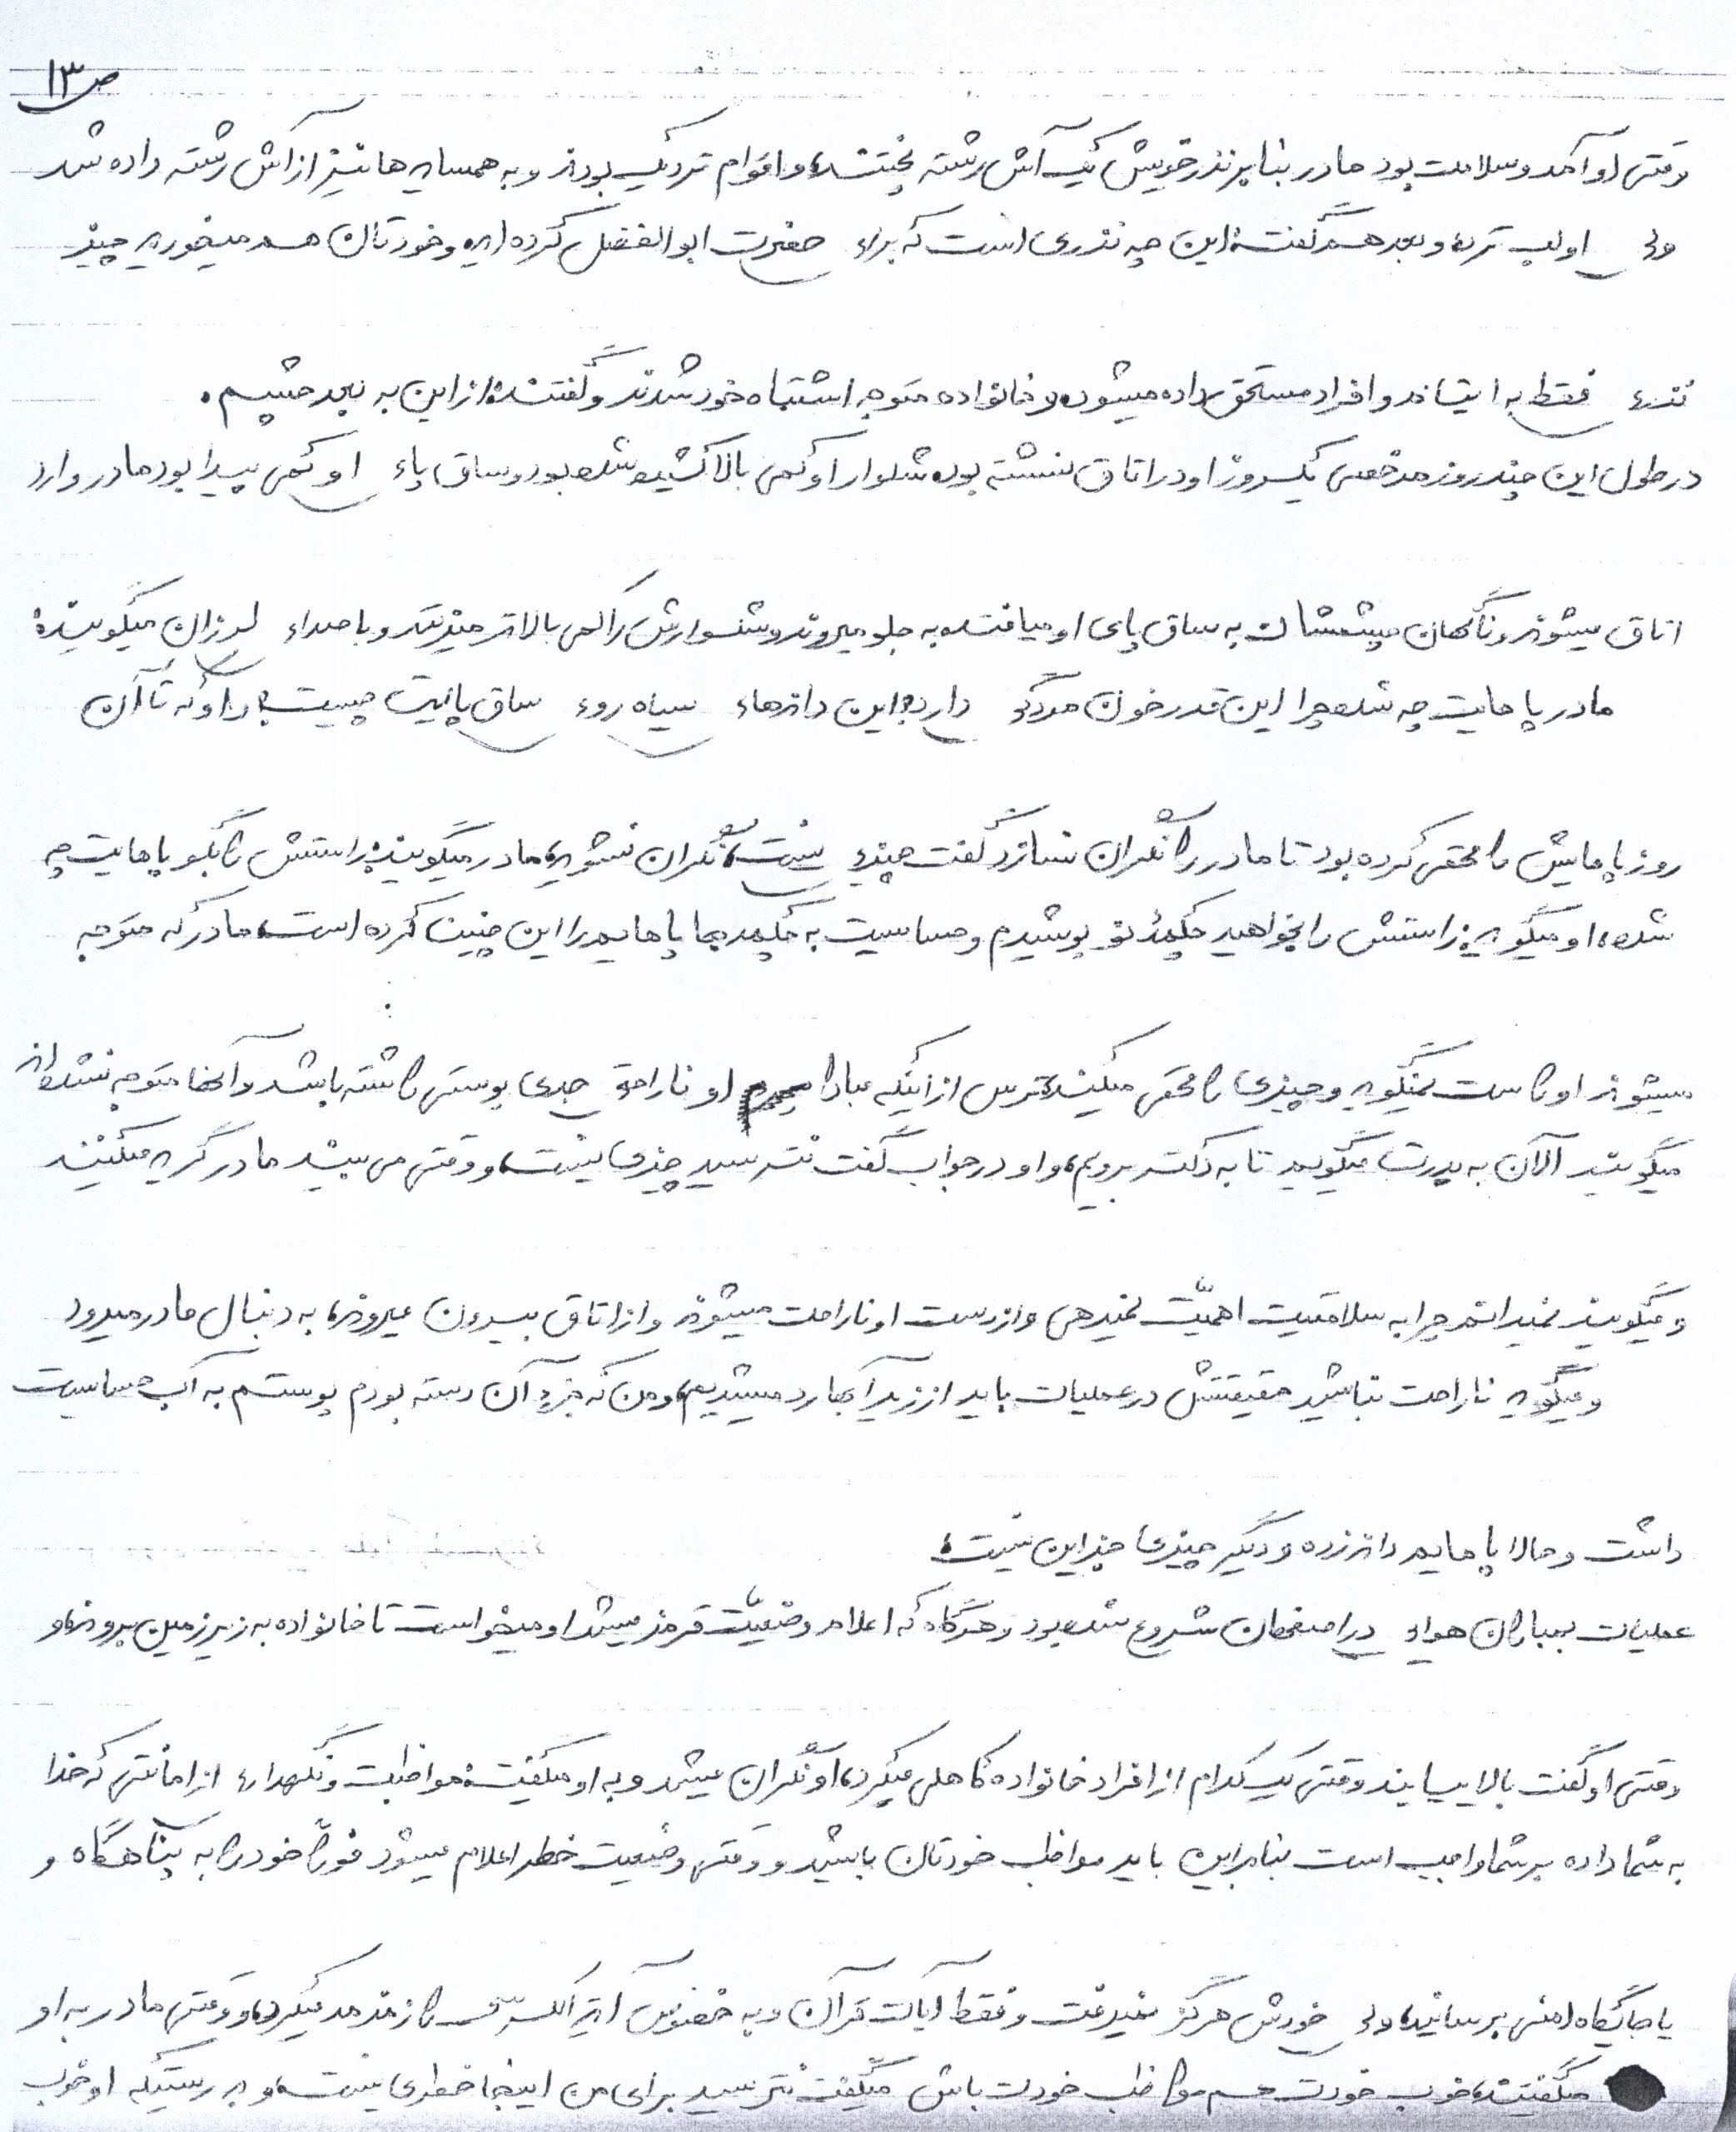 ص ۱۳
وقتی او آمد و سلامت بود مادر بنابر نذر خویش یک آش رشته پختند، و اقوام نزدیک بودند و به همسایه ها نیز از آش رشته داده شد
ولی او لب نزد، و بعد هم گفت: این چه نذری است که برای حضرت ابوالفضل کرده اید و خودتان هم میخورید چیز
نذری فقط به ایتام و افراد مستحق داده میشود، و خانواده متوجه اشتباه خود شدند و گفتند: از این به بعد چشم.
در طول این چند روز مرخصی یکروز او در اتاق نشسته بود، شلوار او کمی بالا کشیده شده بود و ساق پای او کمی پیدا بود مادر وارد
اتاق میشوند و ناگهان چشمشان به ساق پای او میافتد، به جلو میروند و شلوارش را کمی بالاتر میزنند و با صدای لرزان میگویند:
مادر پاهایت چه شده چرا این قدر خون مردگی دارد، این دانه‌های سیاه روی ساق پایت چیست؟ و او که تا آن
روز پاهایش را مخفی کرده بود تا مادر را نگران نسازد گفت چیزی نیست، نگران نشوید، مادر میگویند: راستش را بگو پاهایت چه
شده، او میگوید: راستش را بخواهید چکمه نو پوشیدم و حساسیت به چکمه پاهایم را این چنین کرده است، مادر که متوجه
میشوند او راست نمیگوید و چیزی را مخفی میکند، ترس از اینکه مبادا او ناراحتی جدی پوستی داشته باشد و آنها متوجه نشده اند
میگویند الآن به پدرت میگویم تا به دکتر برویم، و او در جواب گفت نترسید چیزی نیست، و وقتی می بیند مادر گریه میکنند
و میگویند نمیدانم چرا به سلامتیت اهمیّت نمیدهی و از دست او ناراحت میشوند و از اتاق بیرون میروند، به دنبال مادر میرود
و میگوید ناراحت نباشید حقیقتش در عملیات باید از زیر آب رد میشدیم، و من که جزو آن دسته بودم پوستم به آب حساسیت
داشت و حالا پاهایم دانه زده و دیگر چیزی جز این نیست،
عملیات بمباران هوایی در اصفهان شروع شده بود و هرگاه که اعلام وضعیّت قرمز میشد او میخواست تا خانواده به زیرزمین بروند، و
وقتی او گفت بالا بیایند وقتی یک کدام از افراد خانواده کاهلی میکرد، او نگران میشد و به او میگفت: مواظبت و نگهداری از امانتی که خدا
به شما داده بر شما واجب است بنابراین باید مواظب خودتان باشید و وقتی وضعیت خطر اعلام میشود فوراً خود را به پناهگاه و
یا جایگاه امنی برسانید، ولی خودش هرگز نمیرفت و فقط آیات قرآن و به خصوص آیة الکرسی را زمزمه میکرد، و وقتی مادر به او
میگفتند، خوب خودت هم مواظب خودت باش میگفت نترسید برای من اینجا خطری نیست، و به درستیکه او خوب